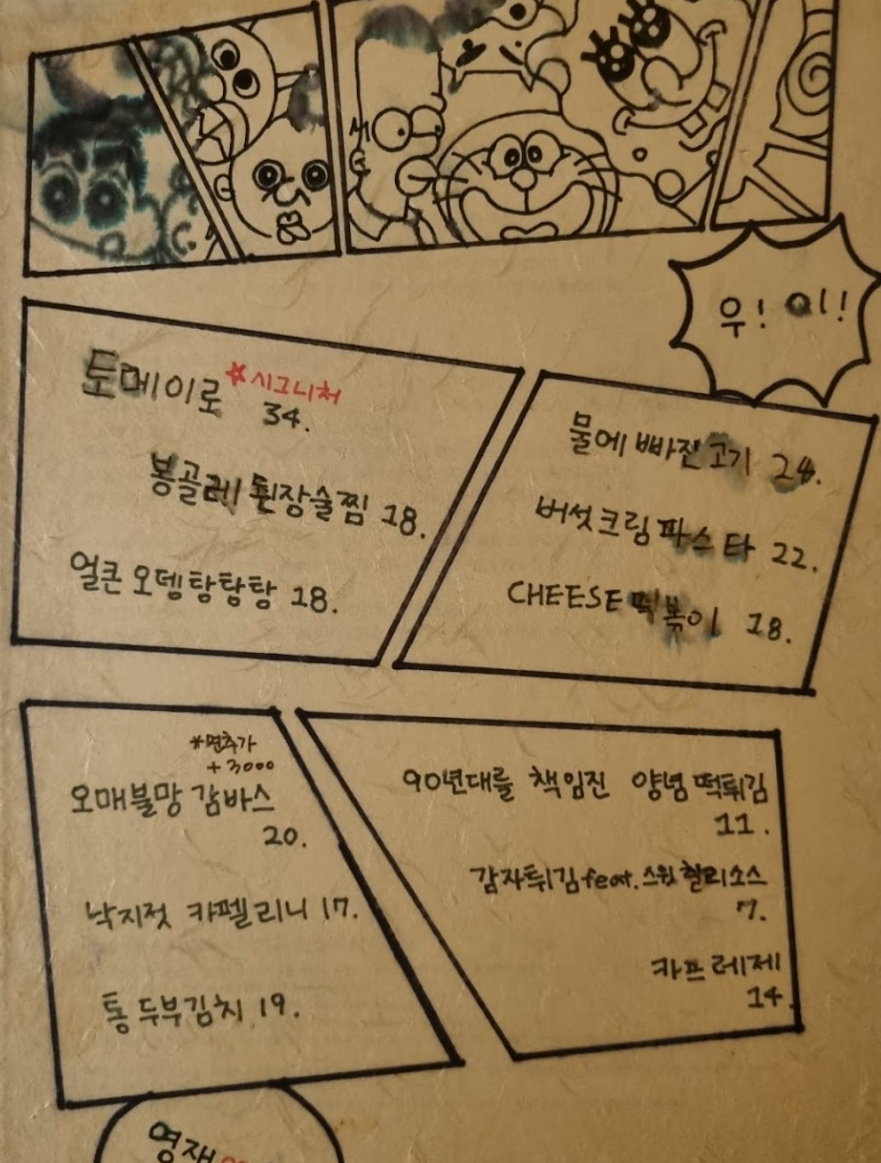 우! 이!
토메이로 *시그니처
34.
봉골레 된장술찜 18.
얼큰 오뎅탕탕탕 18.
물에 빠진 고기 24.
버섯크림 파스타 22.
CHEESE 떡볶이 18.
*면추가
+3000
오매불망 감바스
20.
낙지젓 카펠리니 17.
통 두부김치 19.
90년대를 책임진 양념 떡튀김
11.
감자튀김 feat. 스윗칠리소스
7.
카프레제
14.
영재